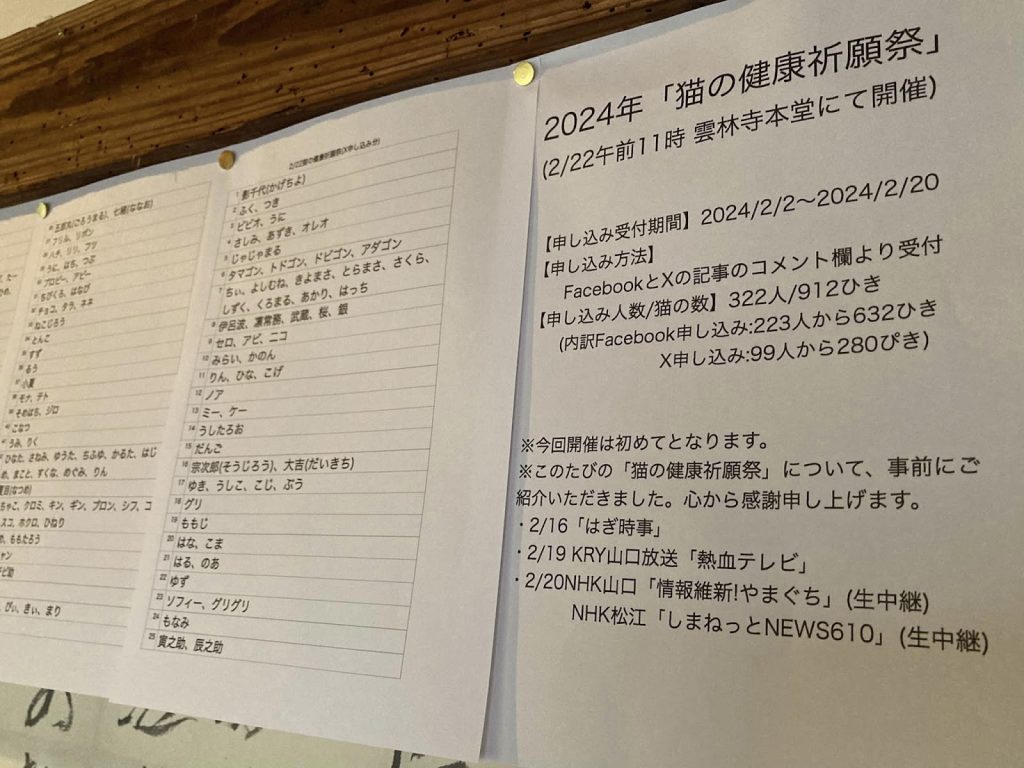 2024年「猫の健康祈願祭」
(2/22午前11時 雲林寺本堂にて開催)
【申し込み受付期間】2024/2/2〜2024/2/20
【申し込み方法】
FacebookとXの記事のコメント欄より受付
【申し込み人数/猫の数】322人/912ひき
(内訳Facebook申し込み:223人から632ひき
X申し込み:99人から280ぴき)
※今回開催は初めてとなります。
※このたびの「猫の健康祈願祭」について、事前にご
紹介いただきました。心から感謝申し上げます。
・2/16「はぎ時事」
・2/19 KRY山口放送「熱血テレビ」
・2/20NHK山口「情報維新!やまぐち」(生中継)
NHK松江「しまねっとNEWS610」(生中継)
2/22猫の健康祈願祭(X申し込み分)
1 影千代(かげちよ)
2 ふく、つき
3 ビビオ、うに
4 さしみ、あずき、オレオ
5 じゃじゃまる
6 タマゴン、トドゴン、ドビゴン、アダゴン
7 ちぃ、よしむね、きよまさ、とらまさ、さくら、
しずく、くろまる、あかり、はっち
8 伊呂波、凛常務、武蔵、桜、銀
9 セロ、アビ、ニコ
10 みらい、かのん
11 りん、ひな、こげ
12 ノア
13 ミー、ケー
14 うしたろお
15 だんご
16 宗次郎(そうじろう)、大吉(だいきち)
17 ゆき、うしこ、こじ、ぶう
18 グリ
19 ももじ
20 はな、こま
21 はる、のあ
22 ゆず
23 ソフィー、グリグリ
24 もなみ
25 寅之助、辰之助
五郎丸(ごろうまる)、七緒(ななお)
プリム、リボン
ハチ、リリ、フツ
うに、はち、つぶ
ちびくろ、はなび
チョコ、タラ、ネネ
ねこじろう
とんこ
すず
るう
小夏
モナ、テト
そめはち、ジロ
こなつ
うみ、りく
ひなた、さねみ、ゆうた、ちふゆ、かるた、はじ
め、まこと、すくな、めぐみ、りん
夏目(なつめ)
ちゃこ、クロミ、キン、ギン、ブロン、シフ、コ
スコ、ホクロ、ひねり
ももたろう
ぴぃ、きぃ、まり